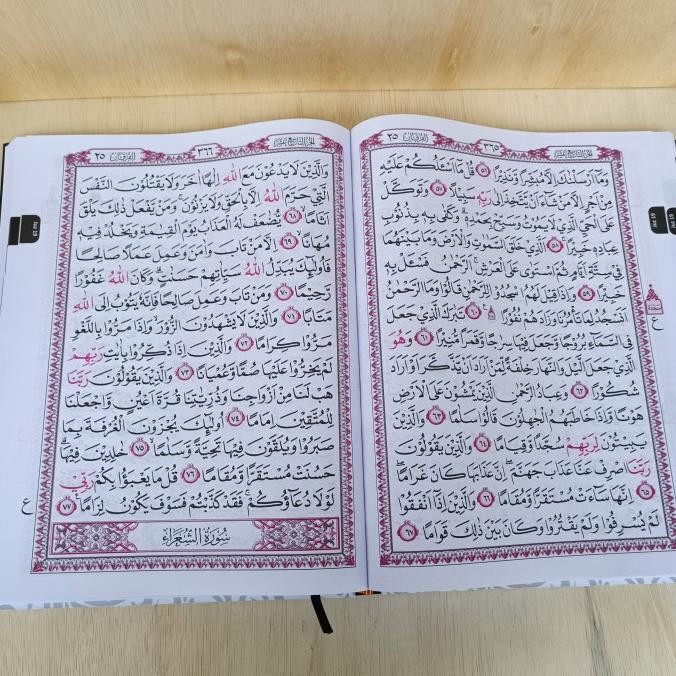 الجزء التاسع عشر ٣٦٥ الفرقان ٢٥
وَمَآ اَرْسَلْنٰكَ اِلَّا مُبَشِّرًا وَّنَذِيْرًا ٥٦ قُلْ مَآ اَسْـَٔلُكُمْ عَلَيْهِ
مِنْ اَجْرٍ اِلَّا مَنْ شَاۤءَ اَنْ يَّتَّخِذَ اِلٰى رَبِّهٖ سَبِيْلًا ٥٧ وَتَوَكَّلْ
عَلَى الْحَيِّ الَّذِيْ لَا يَمُوْتُ وَسَبِّحْ بِحَمْدِهٖۗ وَكَفٰى بِهٖ بِذُنُوْبِ
عِبَادِهٖ خَبِيْرًا ٥٨ اَلَّذِيْ خَلَقَ السَّمٰوٰتِ وَالْاَرْضَ وَمَا بَيْنَهُمَا
فِيْ سِتَّةِ اَيَّامٍ ثُمَّ اسْتَوٰى عَلَى الْعَرْشِۚ اَلرَّحْمٰنُ فَسْـَٔلْ بِهٖ
خَبِيْرًا ٥٩ وَاِذَا قِيْلَ لَهُمُ اسْجُدُوْا لِلرَّحْمٰنِ قَالُوْا وَمَا الرَّحْمٰنُ
اَنَسْجُدُ لِمَا تَأْمُرُنَا وَزَادَهُمْ نُفُوْرًا ۩ ٦٠ تَبٰرَكَ الَّذِيْ جَعَلَ
فِى السَّمَاۤءِ بُرُوْجًا وَّجَعَلَ فِيْهَا سِرَاجًا وَّقَمَرًا مُّنِيْرًا ٦١ وَهُوَ
الَّذِيْ جَعَلَ الَّيْلَ وَالنَّهَارَ خِلْفَةً لِّمَنْ اَرَادَ اَنْ يَّذَّكَّرَ اَوْ اَرَادَ
شُكُوْرًا ٦٢ وَعِبَادُ الرَّحْمٰنِ الَّذِيْنَ يَمْشُوْنَ عَلَى الْاَرْضِ
هَوْنًا وَّاِذَا خَاطَبَهُمُ الْجٰهِلُوْنَ قَالُوْا سَلٰمًا ٦٣ وَالَّذِيْنَ
يَبِيْتُوْنَ لِرَبِّهِمْ سُجَّدًا وَّقِيَامًا ٦٤ وَالَّذِيْنَ يَقُوْلُوْنَ
رَبَّنَا اصْرِفْ عَنَّا عَذَابَ جَهَنَّمَۖ اِنَّ عَذَابَهَا كَانَ غَرَامًاۖ
٦٥ اِنَّهَا سَاۤءَتْ مُسْتَقَرًّا وَّمُقَامًا ٦٦ وَالَّذِيْنَ اِذَآ اَنْفَقُوْا
لَمْ يُسْرِفُوْا وَلَمْ يَقْتُرُوْا وَكَانَ بَيْنَ ذٰلِكَ قَوَامًا ٦٧
الجزء التاسع عشر ٣٦٦ الفرقان ٢٥
وَالَّذِيْنَ لَا يَدْعُوْنَ مَعَ اللّٰهِ اِلٰهًا اٰخَرَ وَلَا يَقْتُلُوْنَ النَّفْسَ
الَّتِيْ حَرَّمَ اللّٰهُ اِلَّا بِالْحَقِّ وَلَا يَزْنُوْنَۚ وَمَنْ يَّفْعَلْ ذٰلِكَ يَلْقَ
اَثَامًا ٦٨ يُّضٰعَفْ لَهُ الْعَذَابُ يَوْمَ الْقِيٰمَةِ وَيَخْلُدْ فِيْهٖ
مُهَانًا ٦٩ اِلَّا مَنْ تَابَ وَاٰمَنَ وَعَمِلَ عَمَلًا صَالِحًا
فَاُولٰۤىِٕكَ يُبَدِّلُ اللّٰهُ سَيِّاٰتِهِمْ حَسَنٰتٍۗ وَكَانَ اللّٰهُ غَفُوْرًا
رَّحِيْمًا ٧٠ وَمَنْ تَابَ وَعَمِلَ صَالِحًا فَاِنَّهٗ يَتُوْبُ اِلَى اللّٰهِ
مَتَابًا ٧١ وَالَّذِيْنَ لَا يَشْهَدُوْنَ الزُّوْرَۙ وَاِذَا مَرُّوْا بِاللَّغْوِ
مَرُّوْا كِرَامًا ٧٢ وَالَّذِيْنَ اِذَا ذُكِّرُوْا بِاٰيٰتِ رَبِّهِمْ
لَمْ يَخِرُّوْا عَلَيْهَا صُمًّا وَّعُمْيَانًا ٧٣ وَالَّذِيْنَ يَقُوْلُوْنَ رَبَّنَا
هَبْ لَنَا مِنْ اَزْوَاجِنَا وَذُرِّيّٰتِنَا قُرَّةَ اَعْيُنٍ وَّاجْعَلْنَا
لِلْمُتَّقِيْنَ اِمَامًا ٧٤ اُولٰۤىِٕكَ يُجْزَوْنَ الْغُرْفَةَ بِمَا
صَبَرُوْا وَيُلَقَّوْنَ فِيْهَا تَحِيَّةً وَّسَلٰمًا ٧٥ خٰلِدِيْنَ فِيْهَاۗ
حَسُنَتْ مُسْتَقَرًّا وَّمُقَامًا ٧٦ قُلْ مَا يَعْبَؤُا بِكُمْ رَبِّيْ
لَوْلَا دُعَاۤؤُكُمْۚ فَقَدْ كَذَّبْتُمْ فَسَوْفَ يَكُوْنُ لِزَامًا ٧٧
سُوْرَةُ الشُّعَرَاءِ